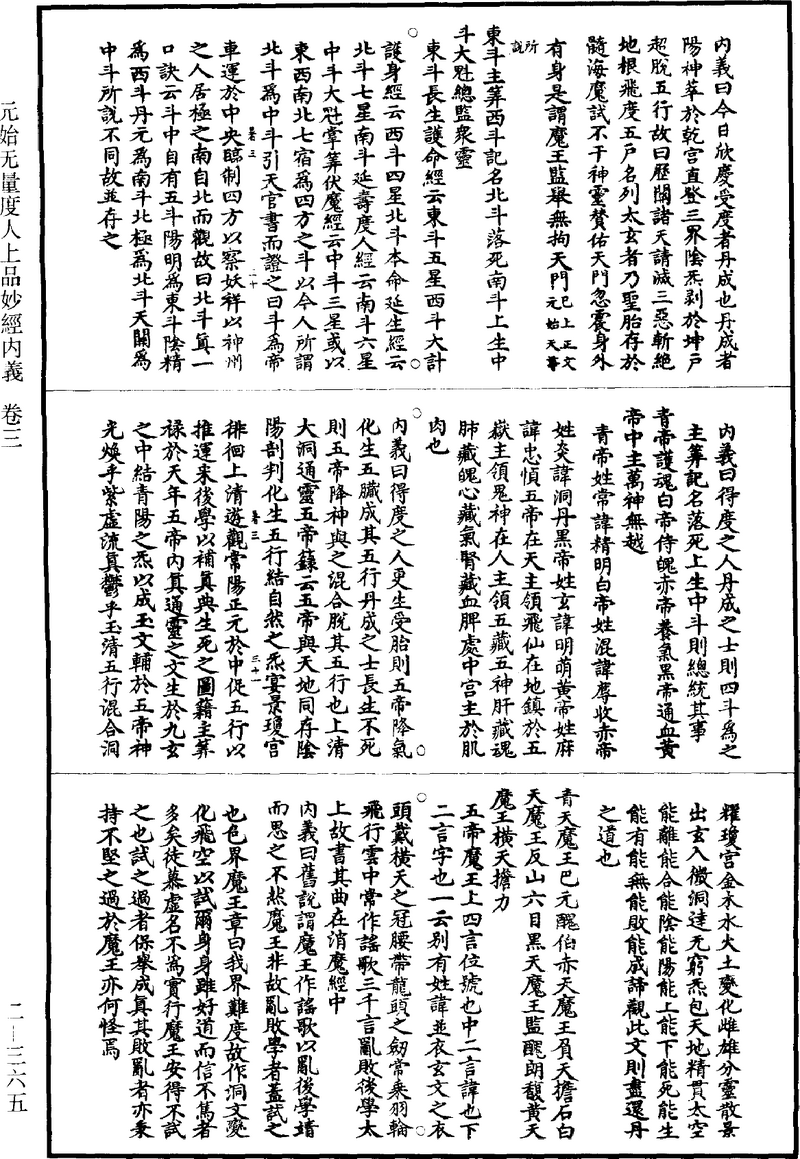 內義曰今日欣慶受度者丹成也丹成者
陽神萃於乾宮直登三界陰炁剝於坤戶
超脫五行故曰歷關諸天請滅三惡斬絕
地根飛度五戶名列太玄者乃聖胎存於
髓海魔試不干神靈贊佑天門忽震身外
有身是謂魔王監舉無拘天門已上正文元始天尊
所說
東斗主筭西斗記名北斗落死南斗上生中
斗大魁總監衆靈
東斗長生護命經云東斗五星西斗大計
護身經云西斗四星北斗本命延生經云
北斗七星南斗延壽度人經云南斗六星
中斗大魁掌筭伏魔經云中斗三星或以
東西南北七宿為四方之斗以今人所謂
北斗為中斗引天官書而證之曰斗為帝
卷三
二十
車運於中央臨制四方以察妖祥以神州
之人居極之南自北而觀故曰北斗真一
口訣云斗中自有五斗陽明為東斗陰精
為西斗丹元為南斗北極為北斗天關為
中斗所說不同故並存之
內義曰得度之人丹成之士則四斗為之
主筭記名落死上生中斗則總統其事
青帝護魂白帝侍魄赤帝養氣黑帝通血黃
帝中主萬神無越
青帝姓常諱精明白帝姓混諱蓐收赤帝
姓炎諱洞丹黑帝姓玄諱明萌黃帝姓麻
諱忠慎五帝在天主領飛仙在地鎮於五
嶽主領鬼神在人主領五藏五神肝藏魂
肺藏魄心藏氣腎藏血脾處中宮主於肌
肉也
內義曰得度之人更生受胎則五帝降氣
化生五臟成其五行丹成之士長生不死
則五帝降神與之混合脫其五行也上清
大洞通靈五帝籙云五帝與天地同存陰
陽剖判化生五行結自然之炁宴景瓊宮
卷三
三十一
徘徊上清遊觀常陽正元於中促五行以
推運来後學以補真典生死之圖籍主筭
祿於天年五帝內真通靈之文生於九玄
之中結青陽之炁以成玉文輔於五帝神
光煥乎紫虛流真鬱乎玉清五行混合洞
耀瓊宮金木水火土變化雌雄分靈散景
出玄入微洞達无窮炁包天地精貫太空
能離能合能陰能陽能上能下能死能生
能有能無能敗能成諦觀此文則盡還丹
之道也
青天魔王巴元醜伯赤天魔王負天擔石白
天魔王反山六目黑天魔王監醜朗馥黃天
魔王橫天擔力
五帝魔王上四言位號也中二言諱也下
二言字也一云別有姓諱並衣玄文之衣
頭戴橫天之冠腰帶龍頭之劒常乘羽輪
飛行雲中常作謠歌三千言亂敗後學太
上故書其曲在消魔經中
內義曰舊說謂魔王作謠歌以亂後學靖
而思之不然魔王非故亂敗學者蓋試之
也色界魔王章曰我界難度故作洞文變
化飛空以試爾身身雖好道而信不篤者
多矣徒慕虛名不為實行魔王安得不試
之也試之過者保舉成真其敗亂者亦秉
持不堅之過於魔王亦何怪焉
元始无量度人上品妙經內義　卷三
二—三六五